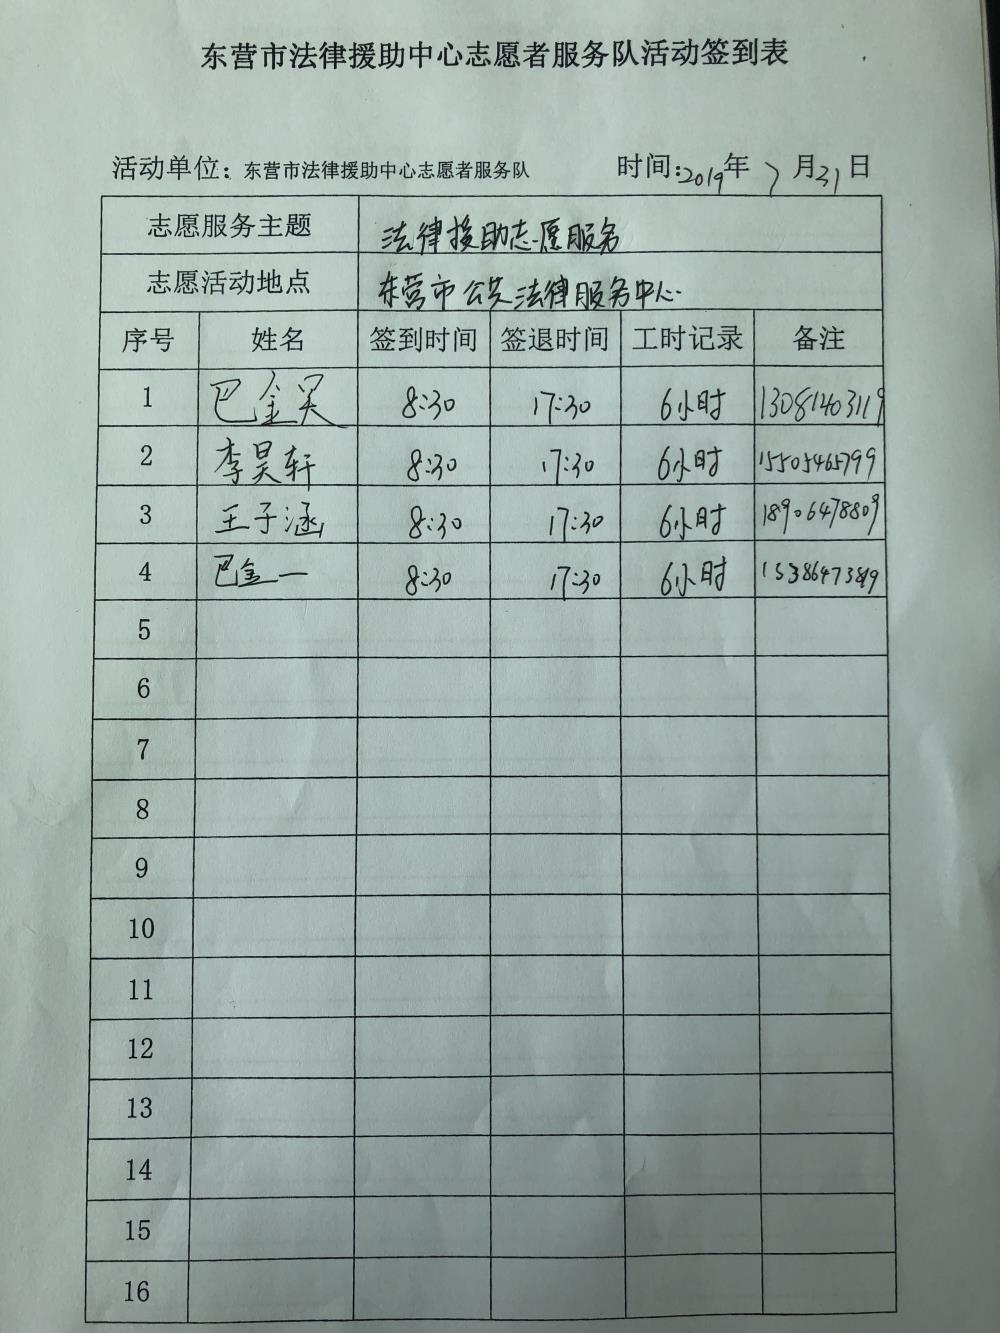 东营市法律援助中心志愿者服务队活动签到表
活动单位：东营市法律援助中心志愿者服务队 时间:2019年 7 月31日
志愿服务主题 法律援助志愿服务
志愿活动地点 东营市公共法律服务中心.
序号 姓名 签到时间 签退时间 工时记录 备注
1 巴金昊 8:30 17:30 6小时 13081403119
2 李昊轩 8:30 17:30 6小时 15505465799
3 王子涵 8:30 17:30 6小时 18906478809
4 巴金一 8:30 17:30 6小时
5
6
7
8
9
10
11
12
13
14
15
16